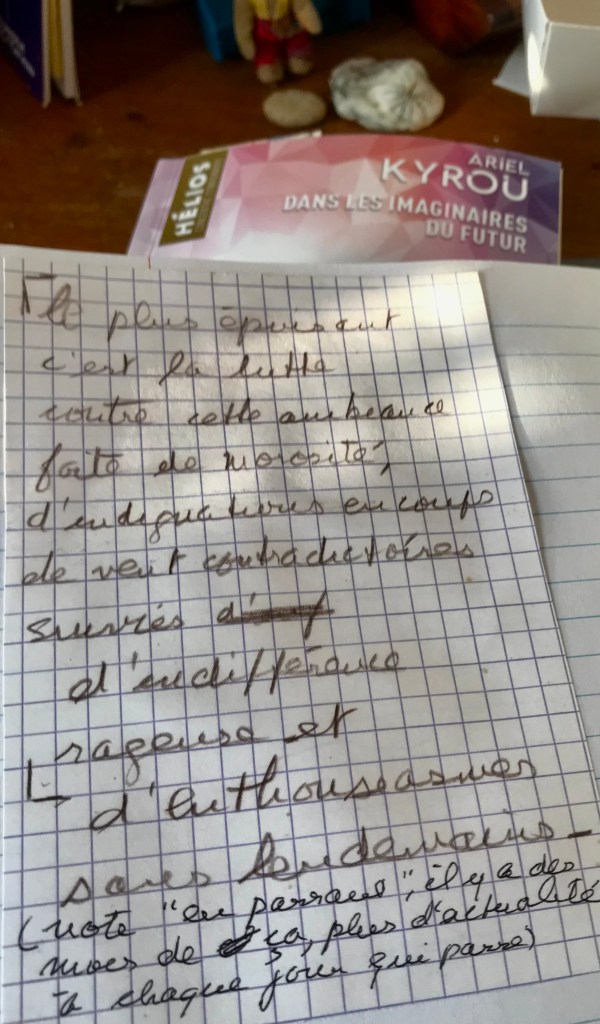 HÉLIOS
ARIEL
KYROU
DANS LES IMAGINAIRES
DU FUTUR
Le plus épuisant
c'est la lutte
contre cette ambiance
faite de morosité,
d'indignations en coups
de vent contradictoires
suivies
d'indifférence
rageuse et
d'enthousiasmes
sans lendemains -
(note "en passant", il y a des
mois de ça, plus d'actualité
à chaque jour qui passe)